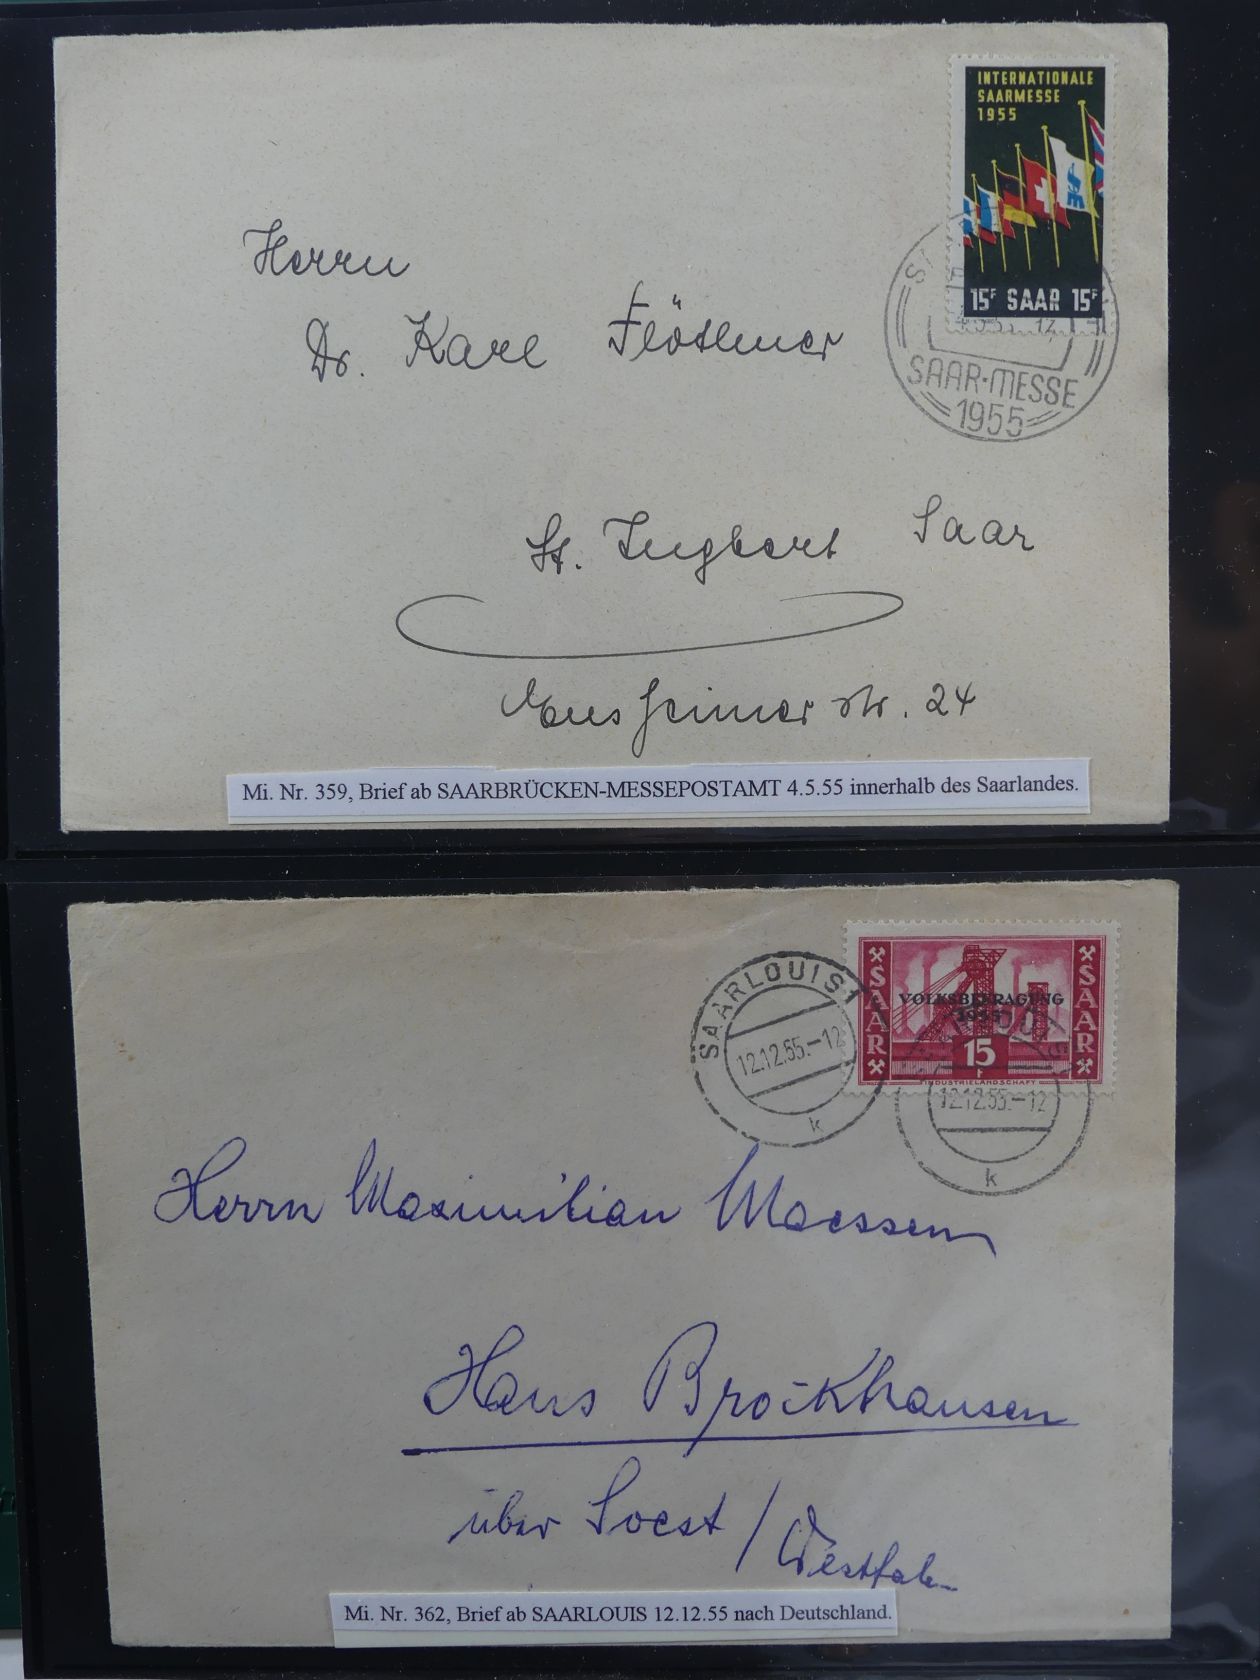 INTERNATIONALE
SAARMESSE
1955
15F SAAR 15F
SAAR-MESSE
1955
Herrn
Dr. Karl Flötlmer
St. Ingbert Saar
str. 24
Mi. Nr. 359, Brief ab SAARBRÜCKEN-MESSEPOSTAMT 4.5.55 innerhalb des Saarlandes.
SAARLOUIS 1
12.12.55.-12
k
SAAR
VOLKSBEFRAGUNG
1955
SAAR
15
F
INDUSTRIELANDSCHAFT
12.12.55.-12
k
Herrn Maximilian Maessen
Haus Brockhausen
über Soest / Westfalen
Mi. Nr. 362, Brief ab SAARLOUIS 12.12.55 nach Deutschland.